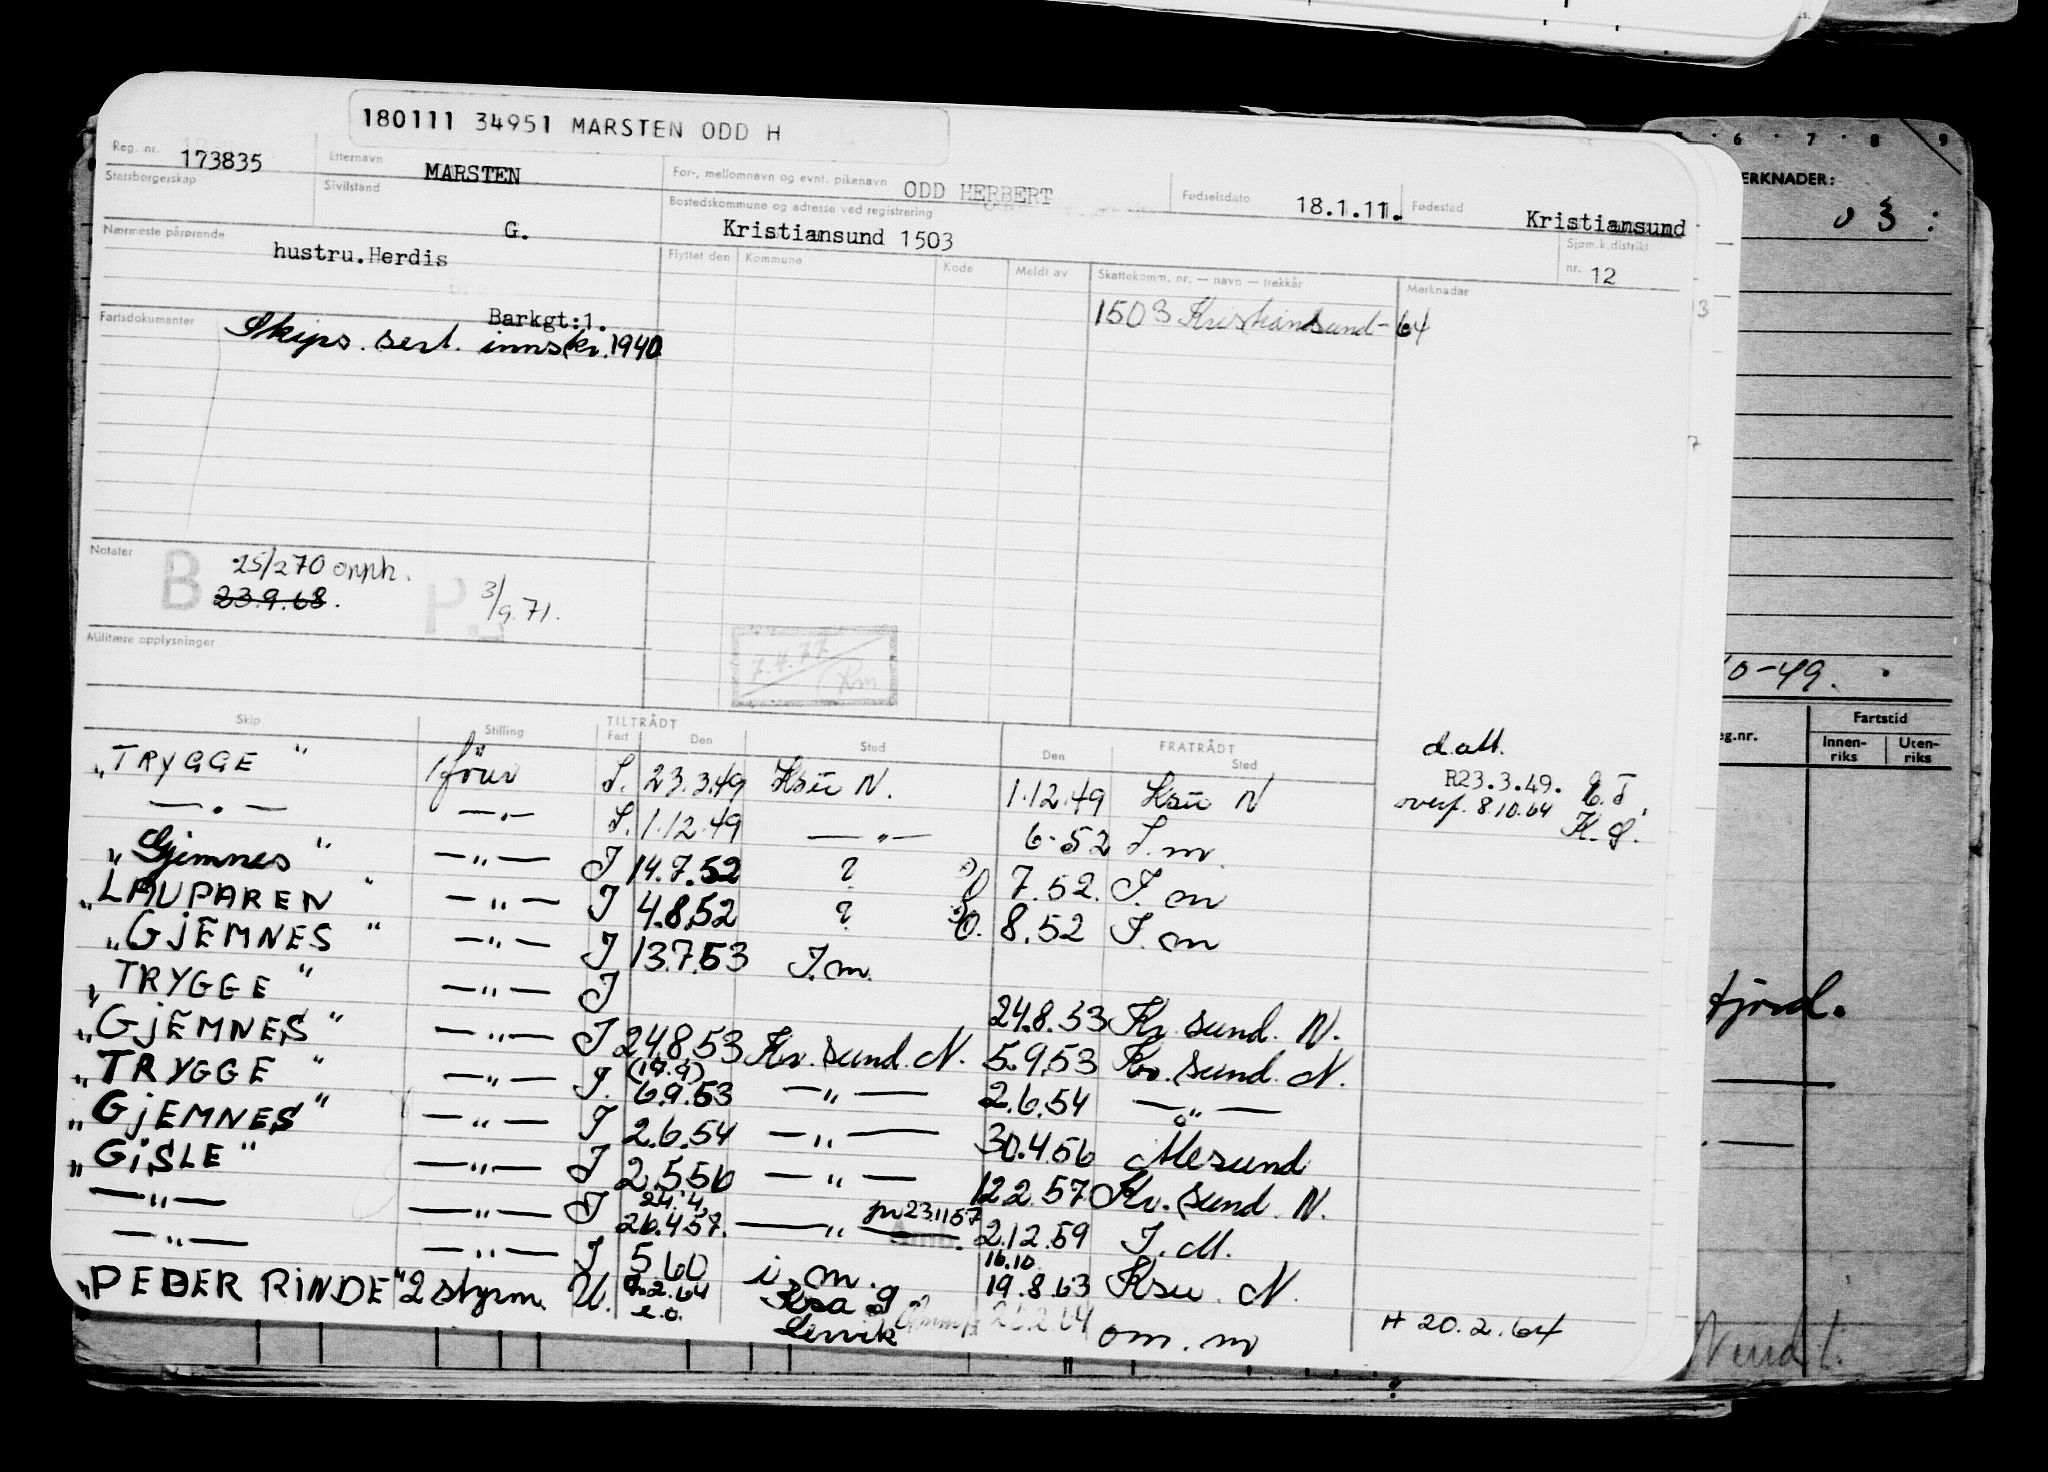 180111 34951 MARSTEN ODD H
Reg. nr. 173835 Etternavn MARSTEN For-, mellomnavn og evnt. pikenavn ODD HERBERT Fødselsdato 18.1.11. Fødested Kristiansund
Statsborgerskap Sivilstand G. Bostedskommune og adresse ved registrering Kristiansund 1503 Sjøm.k.distrikt nr. 12
Nærmeste pårørende hustru.Herdis Flyttet den Kommune Kode Meldt av Skattekomm. nr. — navn — trekkår Merknader
Barkgt:1. 1503 Kristiansund-64
Fartsdokumenter Skips. sert. innskr. 1940
Notater B 25/270 opph. 23.9.68. 3/9.71.
7.4.77 Rm
Militære opplysninger
Skip Stilling TILTRÅDT Fart Den Sted FRATRÅDT Den Sted
d.all.
R23.3.49. E.T.
overf. 8.10.64 K.S.
„TRYGGE" S. 23.3.49 Ksu N. 1.12.49 Ksu N
—„— —„— S. 1.12.49 —„— 6.52 S.m.
„Gjemnes" —„— I 14.7.52 ? 7.52. I.m
„LAUPAREN" —„— I 4.8.52 ? 8.52 I.m
„GJEMNES" —„— I 13.7.53 I.m.
„TRYGGE" —„— I 24.8.53 Kr.sund. N.
„GJEMNES" —„— I 24.8.53 Kr.sund. N. 5.9.53 Kr.sund. N.
„TRYGGE" —„— I. 6.9.53 —„— 2.6.54 —„—
„GJEMNES" —„— I 2.6.54 —„— 30.4.56 Ålesund
„GISLE" —„— I 2.5.56 —„— 12.2.57 Kr.sund. N.
—„— —„— I 24.4. 26.4.57. —„— 23.11.57 2.12.59 I.M.
—„— —„— I 5.60 i.m. 16.10 19.8.63 Ksu. N.
„PEDER RINDE" 2 styrm. U. 9.2.64 Lervik om.m H 20.2.64
6 7 8 9
ERKNADER:
03:
10-49.
eg.nr. Fartstid
Innenriks Utenriks
fjord.